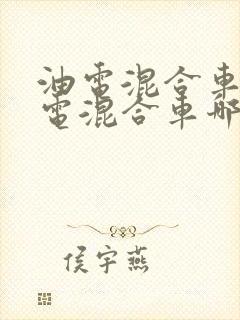 油電混合車
電混合車哪
侯宇燕